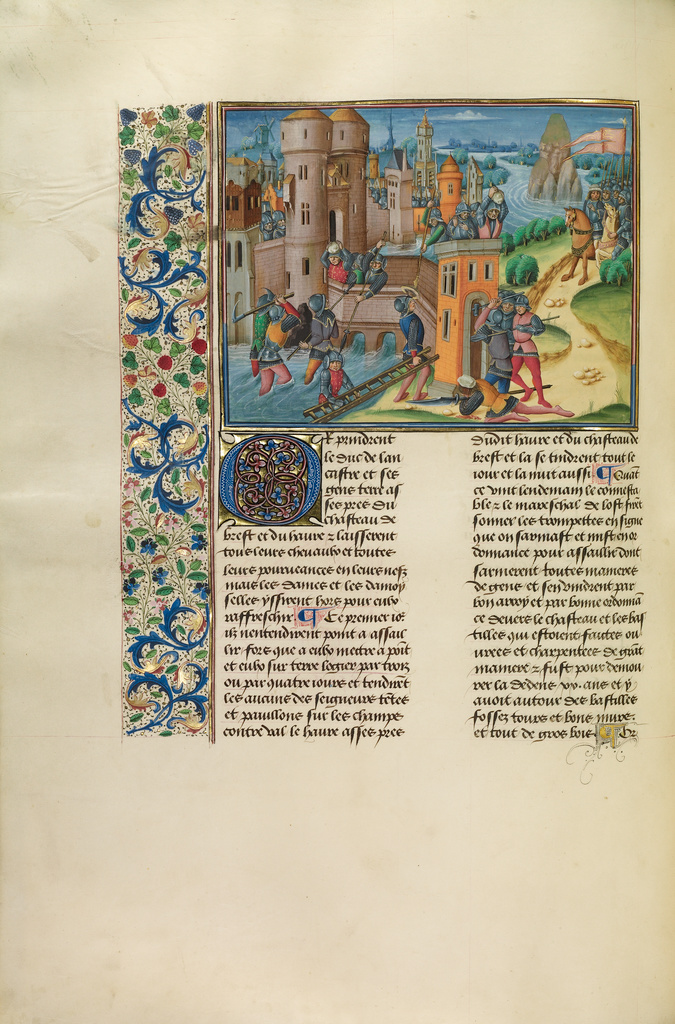 Or prindrent
le duc de lan
castre et ses
gens terre as
ses pres du
chasteau de
brest et du havre z laisserent
tous leurs chevaulx et toutes
leurs pourveances en leurs nefz
mais les dames et les damoy
selles yssirent hors pour eulx
raffreschir. ¶ Ce premier io
ilz nentendirent point a assail
lir fors que a eulx mettre a poīt
et eulx sur terre logier par trois
ou par quatre iours et tendirēt
les aucuns des seigneurs tētes
et pavillons sur les champs
contreval le havre asses pres
dudit havre et du chasteau de
brest et la se tindrent tout le
iour et la nuit aussi ¶ Quāt
ce vint lendemain le connesta
ble z le mareschal de lost firēt
sonner les trompettes en signe
que on sarmast et mist en or
donnance pour assaillir dont
sarmerent toutes manieres
de gens et sen vindrent par
bon arroy et par bonne ordonnā
ce devers le chasteau et les bas
tilles qui estoient faictes ou
vrees et charpentees de grāt
maniere z fust pour demou
rer la dedens .xv. ans et y
avoit autour des bastilles
fossez tours et bons murs.
et tout de gros bois ¶ Or